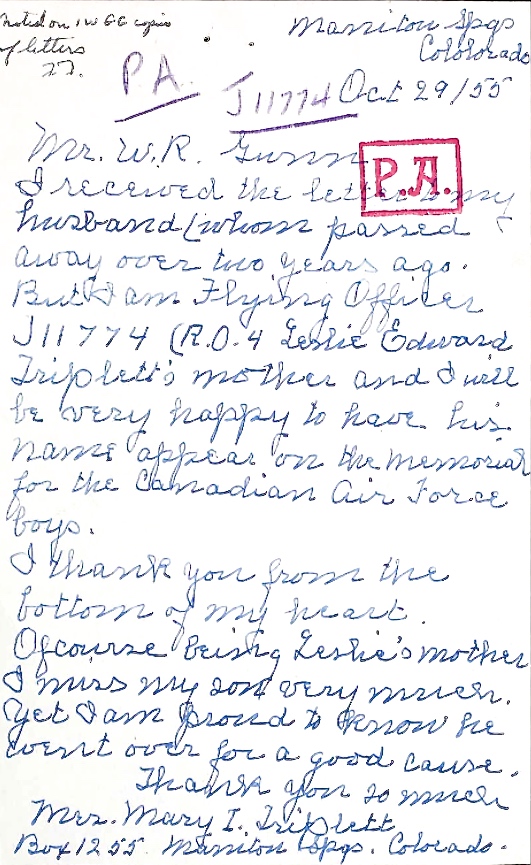 noted on IWGC copies
of letters
27.
Manitou Spgs
Cololorado
P.A.
J11774 Oct 29/55
Mr. W.R. Gunn
P.A.
I received the letter to my
husband (whom passed
away over two years ago.
But I am Flying Officer
J11774 (R.O.4 Leslie Edward
Triplett's mother and I will
be very happy to have his
name appear on the Memorial
for the Canadian Air Force
boys.
I thank you from the
bottom of my heart.
Ofcourse being Leslie's mother
I miss my son very much.
Yet I am proud to know he
went over for a good cause.
Thank you so much
Mrs. Mary I. Triplett
Box 1255 Manitou Spgs. Colorado.